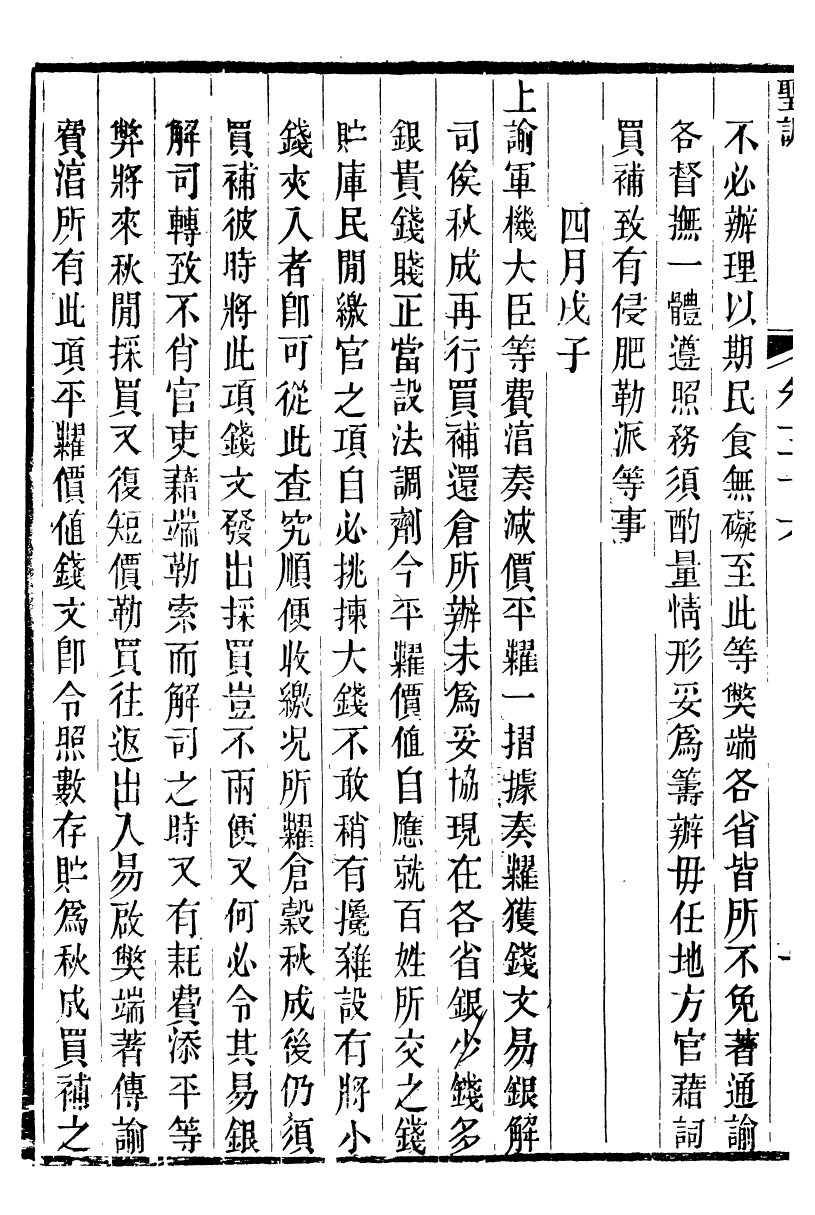 聖訓
不必辦理以期民食無礙至此等弊端各省皆所不免著通諭
各督撫一體遵照務須酌量情形妥為籌辦毋任地方官藉詞
買補致有侵肥勒派等事
四月戊子
上諭軍機大臣等費淳奏減價平糶一摺據奏糶獲錢文易銀解
司俟秋成再行買補還倉所辦未為妥協現在各省銀少錢多
銀貴錢賤正當設法調劑今平糶價值自應就百姓所交之錢
貯庫民間繳官之項自必挑揀大錢不敢稍有攙雜設有將小
錢夾入者卽可從此查究順便收繳況所糶倉穀秋成後仍須
買補彼時將此項錢文發出採買豈不兩便又何必令其易銀
解司轉致不肖官吏藉端勒索而解司之時又有耗費添平等
弊將來秋間採買又復短價勒買往返出入易啟弊端著傳諭
費淳所有此項平糶價值錢文卽令照數存貯為秋成買補之